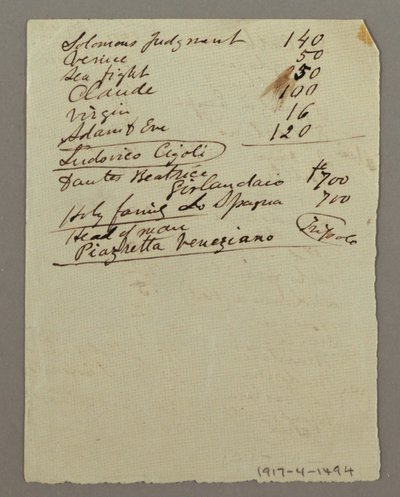 Solomons Judgment 140
Venice 50
Sea fight 50
Claude 100
Virgin 16
Adam & Eve 120
Ludovico Cigoli
Dantes Beatrice
Girlandaio 700
Holy family Lo Spagna 700
Head of man
Piazetta Veneziano Tiepolo
1917-4-1494